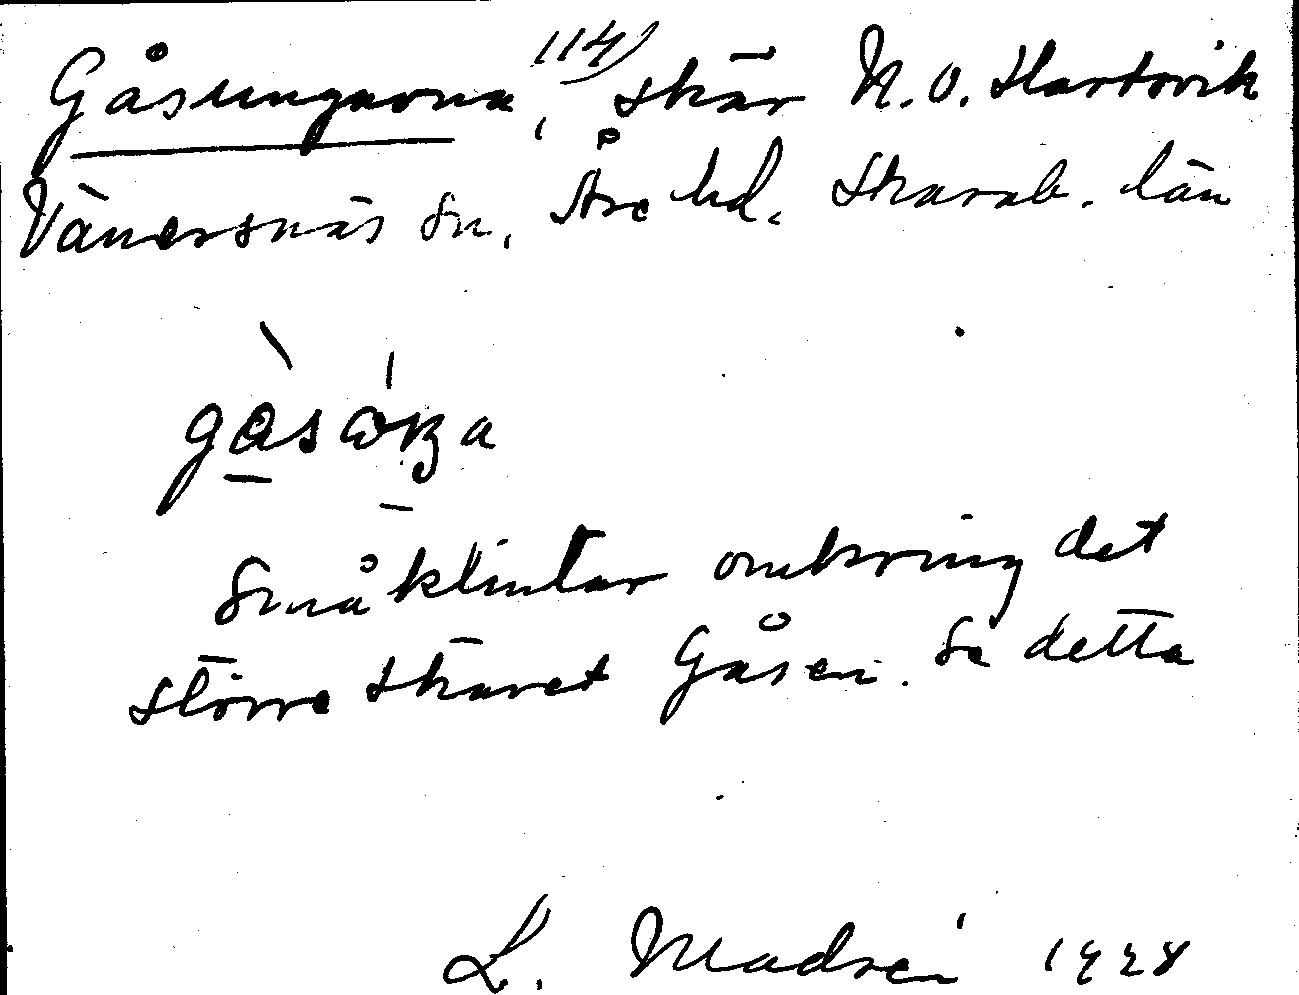 Gåsungarna, 114) skär N.O. Hartsvik
Vänersnäs sn, Åse hd. Skarab. län
Småklintar omkring det
större skäret Gåsen. Se detta
L. Modéen 1928